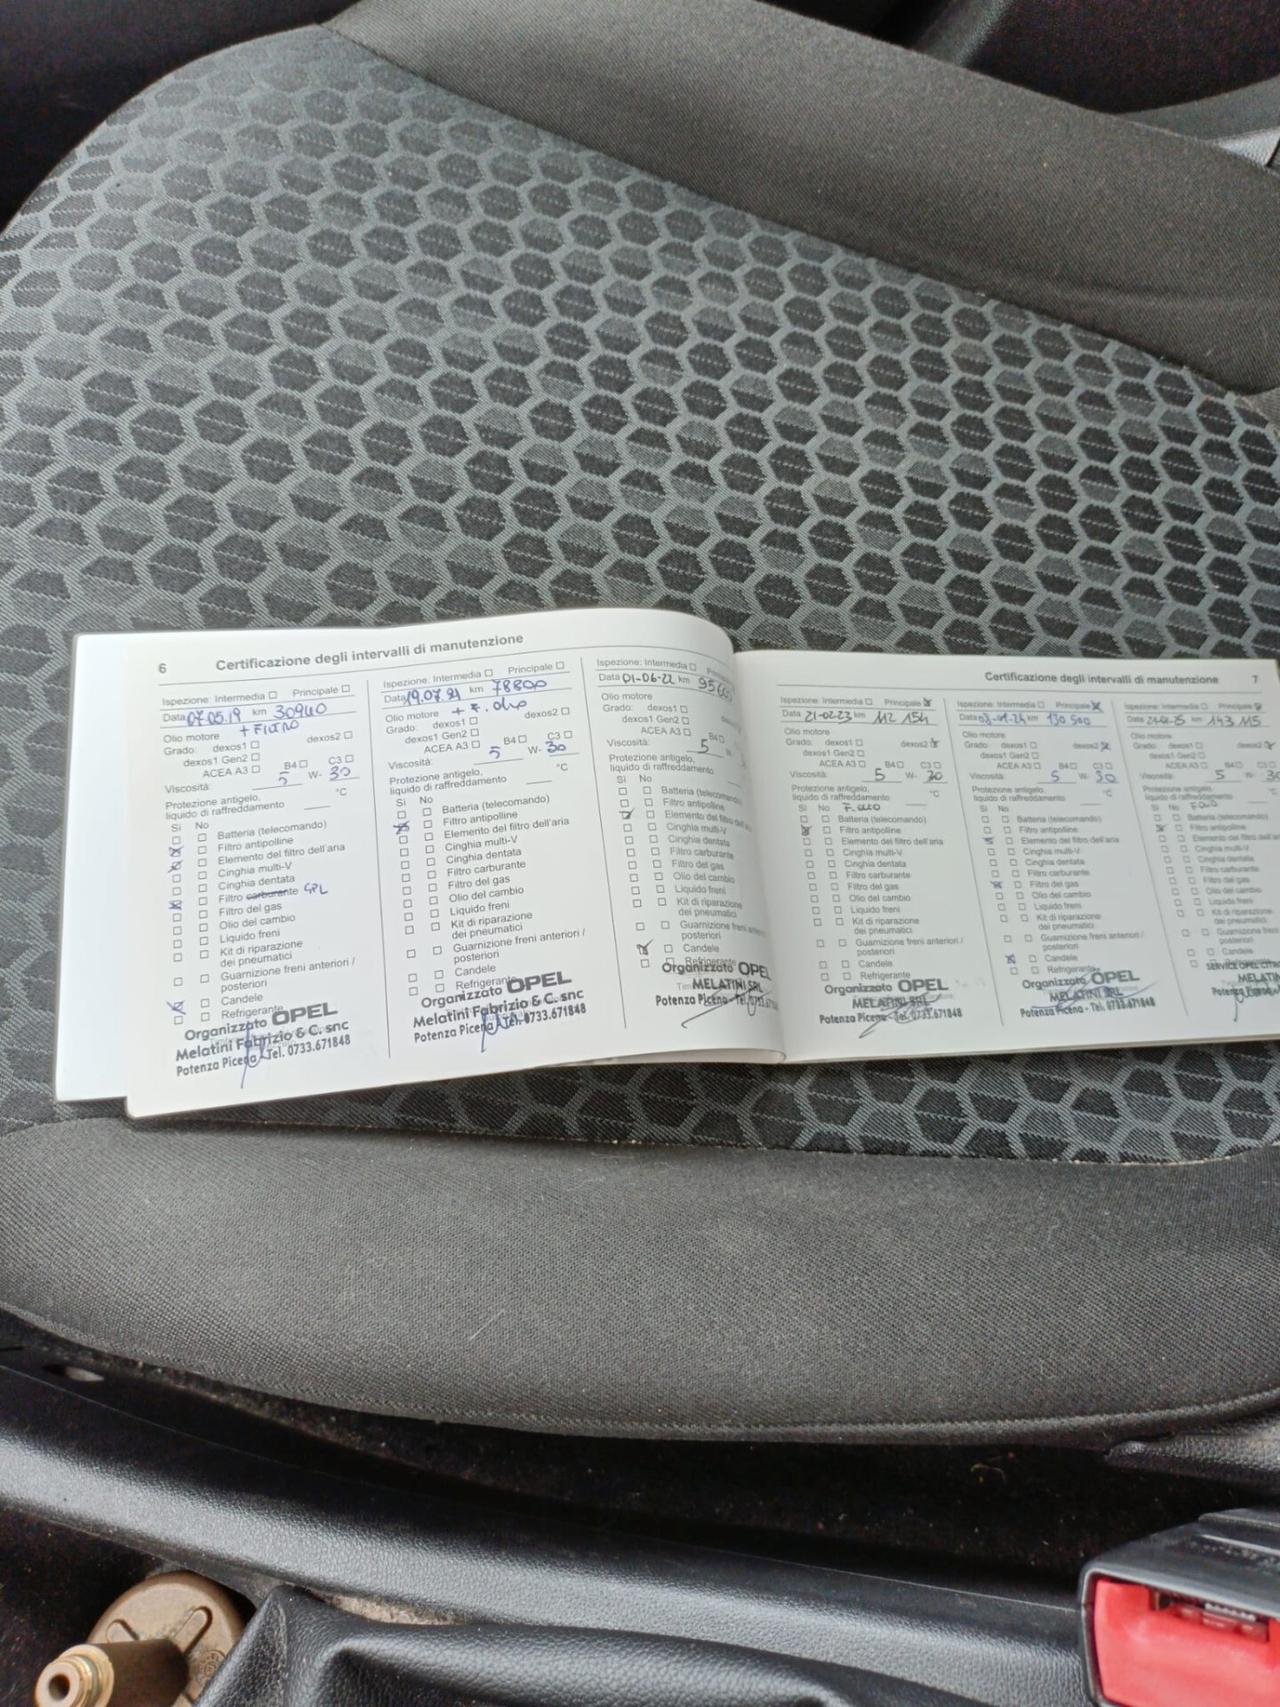 6 Certificazione degli intervalli di manutenzione
Ispezione: Intermedia Principale
Data 07.05.19 km 30940
Olio motore + FILTRO
Grado: dexos1 dexos2
dexos1 Gen2
ACEA A3 B4 C3
Viscosità: 5 W- 30
Protezione antigelo, °C
liquido di raffreddamento
Sì No
Batteria (telecomando)
Filtro antipolline
Elemento del filtro dell'aria
Cinghia multi-V
Cinghia dentata
Filtro carburante GPL
Filtro del gas
Olio del cambio
Liquido freni
Kit di riparazione
dei pneumatici
Guarnizione freni anteriori /
posteriori
Candele
Refrigerante
Organizzato OPEL
Melatini Fabrizio & C. snc
Potenza Picena Tel. 0733.671848
Ispezione: Intermedia Principale
Data 19.07.21 km 78800
Olio motore + F. olio
Grado: dexos1 dexos2
dexos1 Gen2
ACEA A3 B4 C3
Viscosità: 5 W- 30
Protezione antigelo, °C
liquido di raffreddamento
Sì No
Batteria (telecomando)
Filtro antipolline
Elemento del filtro dell'aria
Cinghia multi-V
Cinghia dentata
Filtro carburante
Filtro del gas
Olio del cambio
Liquido freni
Kit di riparazione
dei pneumatici
Guarnizione freni anteriori /
posteriori
Candele
Refrigerante
Organizzato OPEL
Melatini Fabrizio & C. snc
Potenza Picena Tel. 0733.671848
Ispezione: Intermedia
Data 01-06-22 km
Olio motore
Grado: dexos1
dexos1 Gen2
ACEA A3 B4
Viscosità: 5
Protezione antigelo,
liquido di raffreddamento
Sì No
Batteria (telecomando)
Filtro antipolline
Elemento del filtro
Cinghia multi-V
Cinghia dentata
Filtro carburante
Filtro del gas
Olio del cambio
Liquido freni
Kit di riparazione
dei pneumatici
Guarnizione freni
posteriori
Candele
Refrigerante
Organizzato OPEL
MELATINI SRL
Potenza Picena - Tel.
Certificazione degli intervalli di manutenzione 7
Ispezione: Intermedia Principale
Data 21-02-23 km 112 154
Olio motore
Grado: dexos1 dexos2
dexos1 Gen2
ACEA A3 B4 C3
Viscosità: 5 W- 30
Protezione antigelo, °C
liquido di raffreddamento
Sì No
Batteria (telecomando)
Filtro antipolline
Elemento del filtro dell'aria
Cinghia multi-V
Cinghia dentata
Filtro carburante
Filtro del gas
Olio del cambio
Liquido freni
Kit di riparazione
dei pneumatici
Guarnizione freni anteriori /
posteriori
Candele
Refrigerante
Organizzato OPEL
MELATINI SRL
Potenza Picena - Tel. 0733.671848
Ispezione: Intermedia Principale
km 130 500
Olio motore
Grado: dexos1 dexos2
dexos1 Gen2
ACEA A3 B4 C3
Viscosità: 5 W- 30
Protezione antigelo, °C
liquido di raffreddamento
Sì No
Batteria (telecomando)
Filtro antipolline
Elemento del filtro dell'aria
Cinghia multi-V
Cinghia dentata
Filtro carburante
Filtro del gas
Olio del cambio
Liquido freni
Kit di riparazione
dei pneumatici
Guarnizione freni anteriori /
posteriori
Candele
Refrigerante
Organizzato OPEL
MELATINI SRL
Potenza Picena - Tel. 0733.671848
Ispezione: Intermedia Principale
Data km 143 115
Olio motore
Grado: dexos1 dexos2
dexos1 Gen2
ACEA A3 B4 C3
Viscosità: 5 W- 30
Protezione antigelo,
liquido di raffreddamento
Sì No
Batteria (telecomando)
Filtro antipolline
Elemento del filtro dell'aria
Cinghia multi-V
Cinghia dentata
Filtro carburante
Filtro del gas
Olio del cambio
Liquido freni
Kit di riparazione
dei pneumatici
Guarnizione freni
posteriori
Candele
Refrigerante
SERVICE OPEL